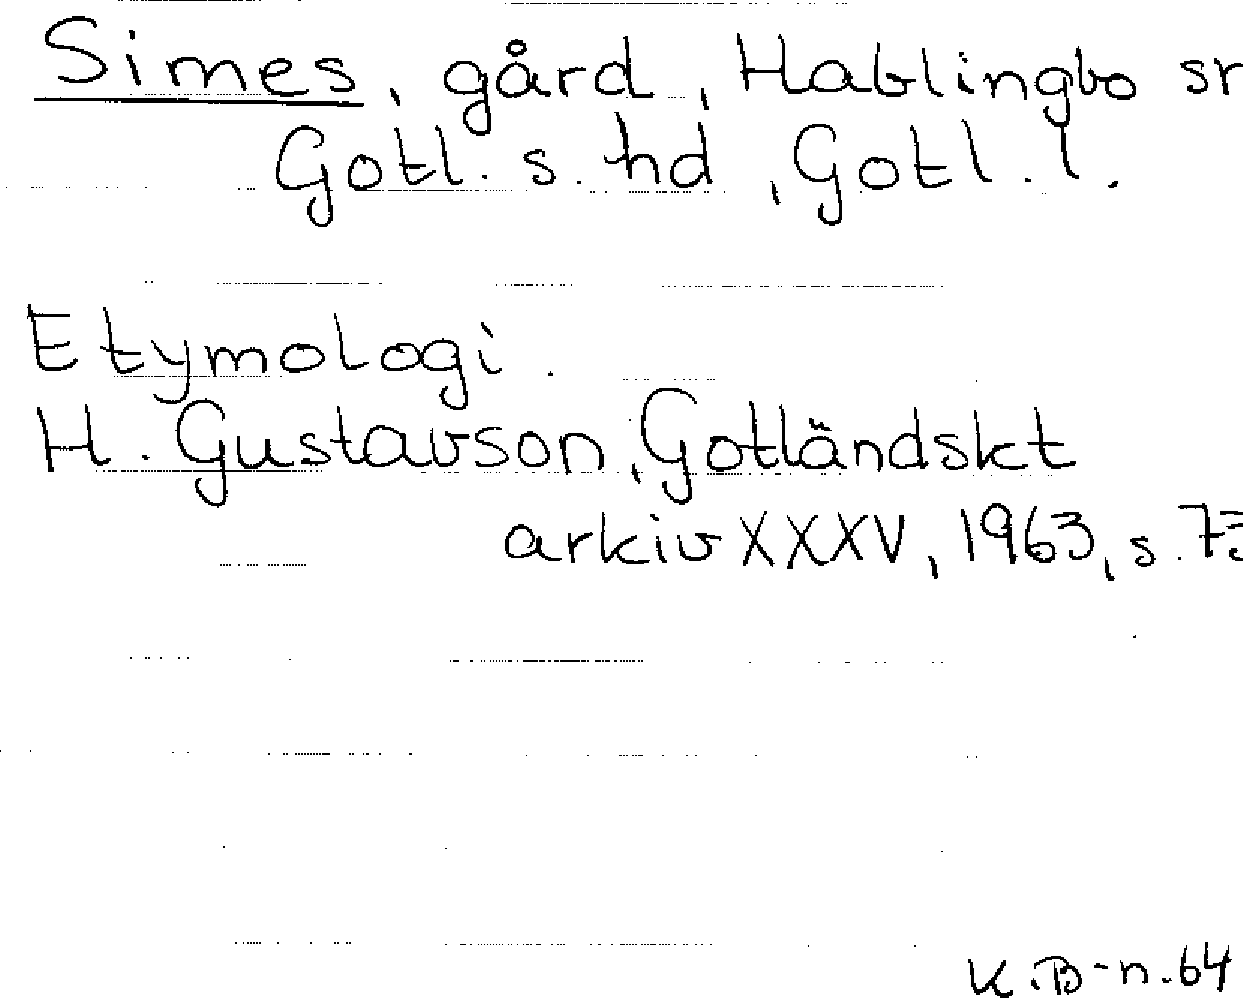 Simes, gård, Hablingbo sn
Gotl. s. hd, Gotl. l.
Etymologi.
H. Gustavson, Gotländskt
arkiv XXXV, 1963, s. 73
K.B-n.64